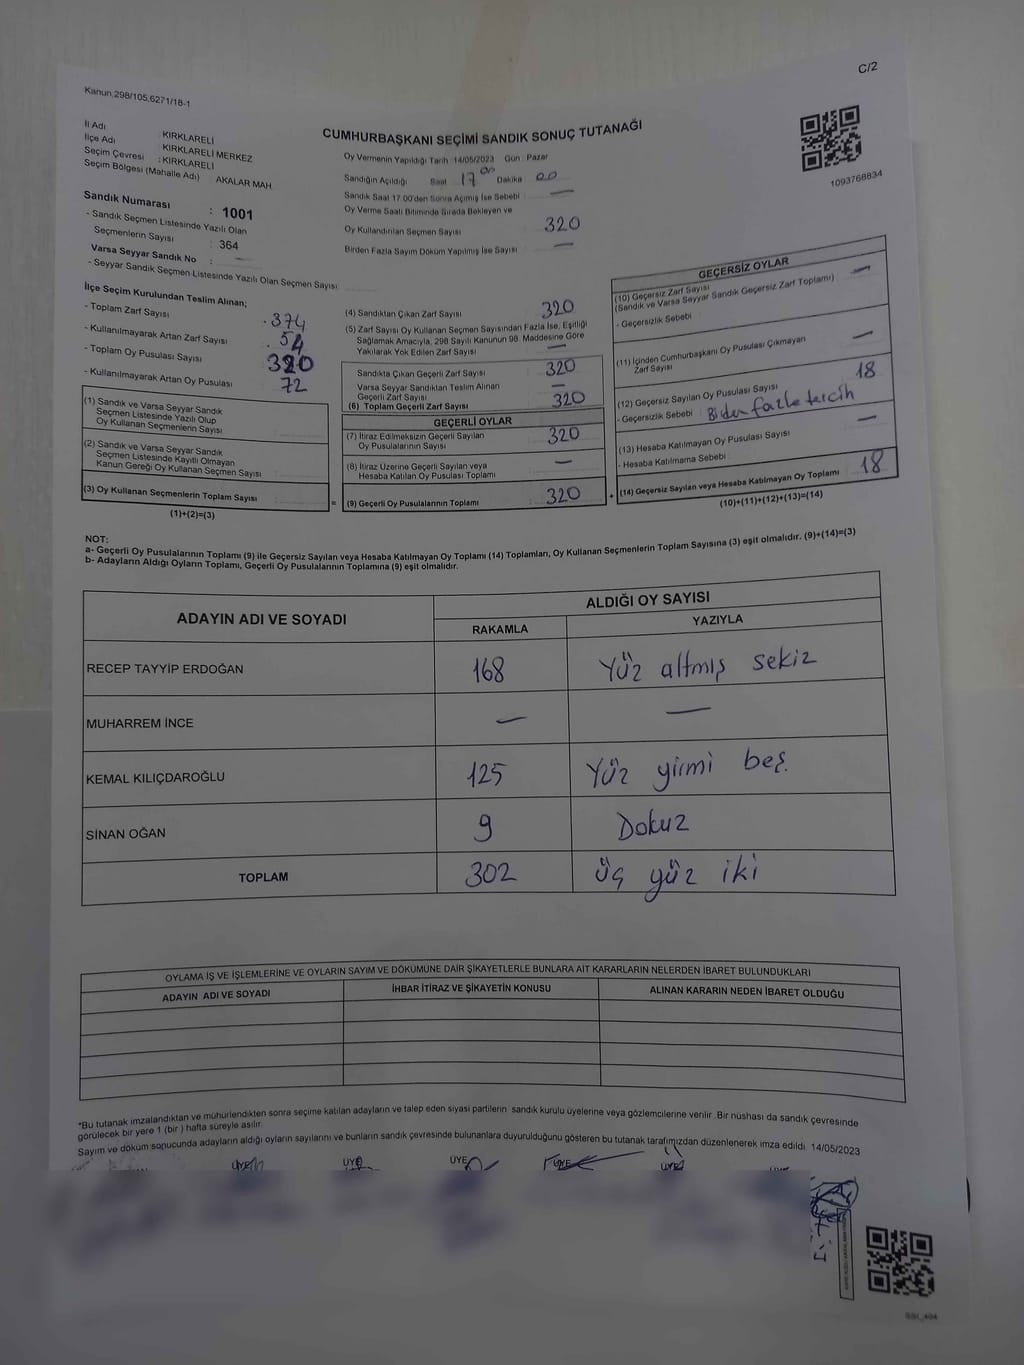 C/2
Kanun.298/105.6271/18-1
CUMHURBAŞKANI SEÇİMİ SANDIK SONUÇ TUTANAĞI
1093768834
İl Adı : KIRKLARELİ
İlçe Adı : KIRKLARELİ MERKEZ
Seçim Çevresi : KIRKLARELİ
Seçim Bölgesi (Mahalle Adı) : AKALAR MAH.
Sandık Numarası : 1001
- Sandık Seçmen Listesinde Yazılı Olan
Seçmenlerin Sayısı : 364
Varsa Seyyar Sandık No : —
- Seyyar Sandık Seçmen Listesinde Yazılı Olan Seçmen Sayısı
Oy Vermenin Yapıldığı Tarih 14/05/2023 Gün : Pazar
Sandığın Açıldığı Saat 17 00 Dakika 00
Sandık Saat 17.00'den Sonra Açılmış İse Sebebi : —
Oy Verme Saati Bitiminde Sırada Bekleyen ve
Oy Kullandırılan Seçmen Sayısı 320
Birden Fazla Sayım Döküm Yapılmış İse Sayısı —
İlçe Seçim Kurulundan Teslim Alınan;
- Toplam Zarf Sayısı 374
- Kullanılmayarak Artan Zarf Sayısı 54
- Toplam Oy Pusulası Sayısı 320
- Kullanılmayarak Artan Oy Pusulası 72
(1) Sandık ve Varsa Seyyar Sandık
Seçmen Listesinde Yazılı Olup
Oy Kullanan Seçmenlerin Sayısı
(2) Sandık ve Varsa Seyyar Sandık
Seçmen Listesinde Kayıtlı Olmayan
Kanun Gereği Oy Kullanan Seçmen Sayısı
(3) Oy Kullanan Seçmenlerin Toplam Sayısı
(1)+(2)=(3)
(4) Sandıktan Çıkan Zarf Sayısı 320
(5) Zarf Sayısı Oy Kullanan Seçmen Sayısından Fazla İse, Eşitliği
Sağlamak Amacıyla, 298 Sayılı Kanunun 98. Maddesine Göre
Yakılarak Yok Edilen Zarf Sayısı —
Sandıkta Çıkan Geçerli Zarf Sayısı 320
Varsa Seyyar Sandıktan Teslim Alınan
Geçerli Zarf Sayısı —
(6) Toplam Geçerli Zarf Sayısı 320
GEÇERLİ OYLAR
(7) İtiraz Edilmeksizin Geçerli Sayılan
Oy Pusulalarının Sayısı 320
(8) İtiraz Üzerine Geçerli Sayılan veya
Hesaba Katılan Oy Pusulası Toplamı —
= (9) Geçerli Oy Pusulalarının Toplamı : 320
GEÇERSİZ OYLAR
(10) Geçersiz Zarf Sayısı —
(Sandık ve Varsa Seyyar Sandık Geçersiz Zarf Toplamı)
- Geçersizlik Sebebi
(11) İçinden Cumhurbaşkanı Oy Pusulası Çıkmayan
Zarf Sayısı —
(12) Geçersiz Sayılan Oy Pusulası Sayısı 18
- Geçersizlik Sebebi : Birden fazla tercih
(13) Hesaba Katılmayan Oy Pusulası Sayısı —
- Hesaba Katılmama Sebebi
+ (14) Geçersiz Sayılan veya Hesaba Katılmayan Oy Toplamı 18
(10)+(11)+(12)+(13)=(14)
NOT:
a- Geçerli Oy Pusulalarının Toplamı (9) ile Geçersiz Sayılan veya Hesaba Katılmayan Oy Toplamı (14) Toplamları, Oy Kullanan Seçmenlerin Toplam Sayısına (3) eşit olmalıdır. (9)+(14)=(3)
b- Adayların Aldığı Oyların Toplamı, Geçerli Oy Pusulalarının Toplamına (9) eşit olmalıdır.
ADAYIN ADI VE SOYADI ALDIĞI OY SAYISI
RAKAMLA YAZIYLA
RECEP TAYYİP ERDOĞAN 168 Yüz altmış sekiz
MUHARREM İNCE — —
KEMAL KILIÇDAROĞLU 125 Yüz yirmi beş.
SİNAN OĞAN 9 Dokuz
TOPLAM 302 Üç yüz iki
OYLAMA İŞ VE İŞLEMLERİNE VE OYLARIN SAYIM VE DÖKÜMÜNE DAİR ŞİKAYETLERLE BUNLARA AİT KARARLARIN NELERDEN İBARET BULUNDUKLARI
ADAYIN ADI VE SOYADI İHBAR İTİRAZ VE ŞİKAYETİN KONUSU ALINAN KARARIN NEDEN İBARET OLDUĞU
*Bu tutanak imzalandıktan ve mühürlendikten sonra seçime katılan adayların ve talep eden siyasi partilerin sandık kurulu üyelerine veya gözlemcilerine verilir. Bir nüshası da sandık çevresinde
görülecek bir yere 1 (bir) hafta süreyle asılır.
Sayım ve döküm sonucunda adayların aldığı oyların sayılarını ve bunların sandık çevresinde bulunanlara duyurulduğunu gösteren bu tutanak tarafımızdan düzenlenerek imza edildi. 14/05/2023
ÜYE ÜYE ÜYE ÜYE ÜYE